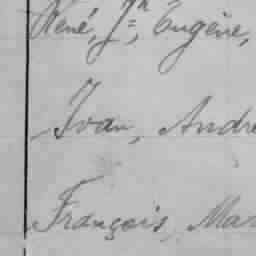 René, Jn, Eugène,
Ivan, André
François, Mar